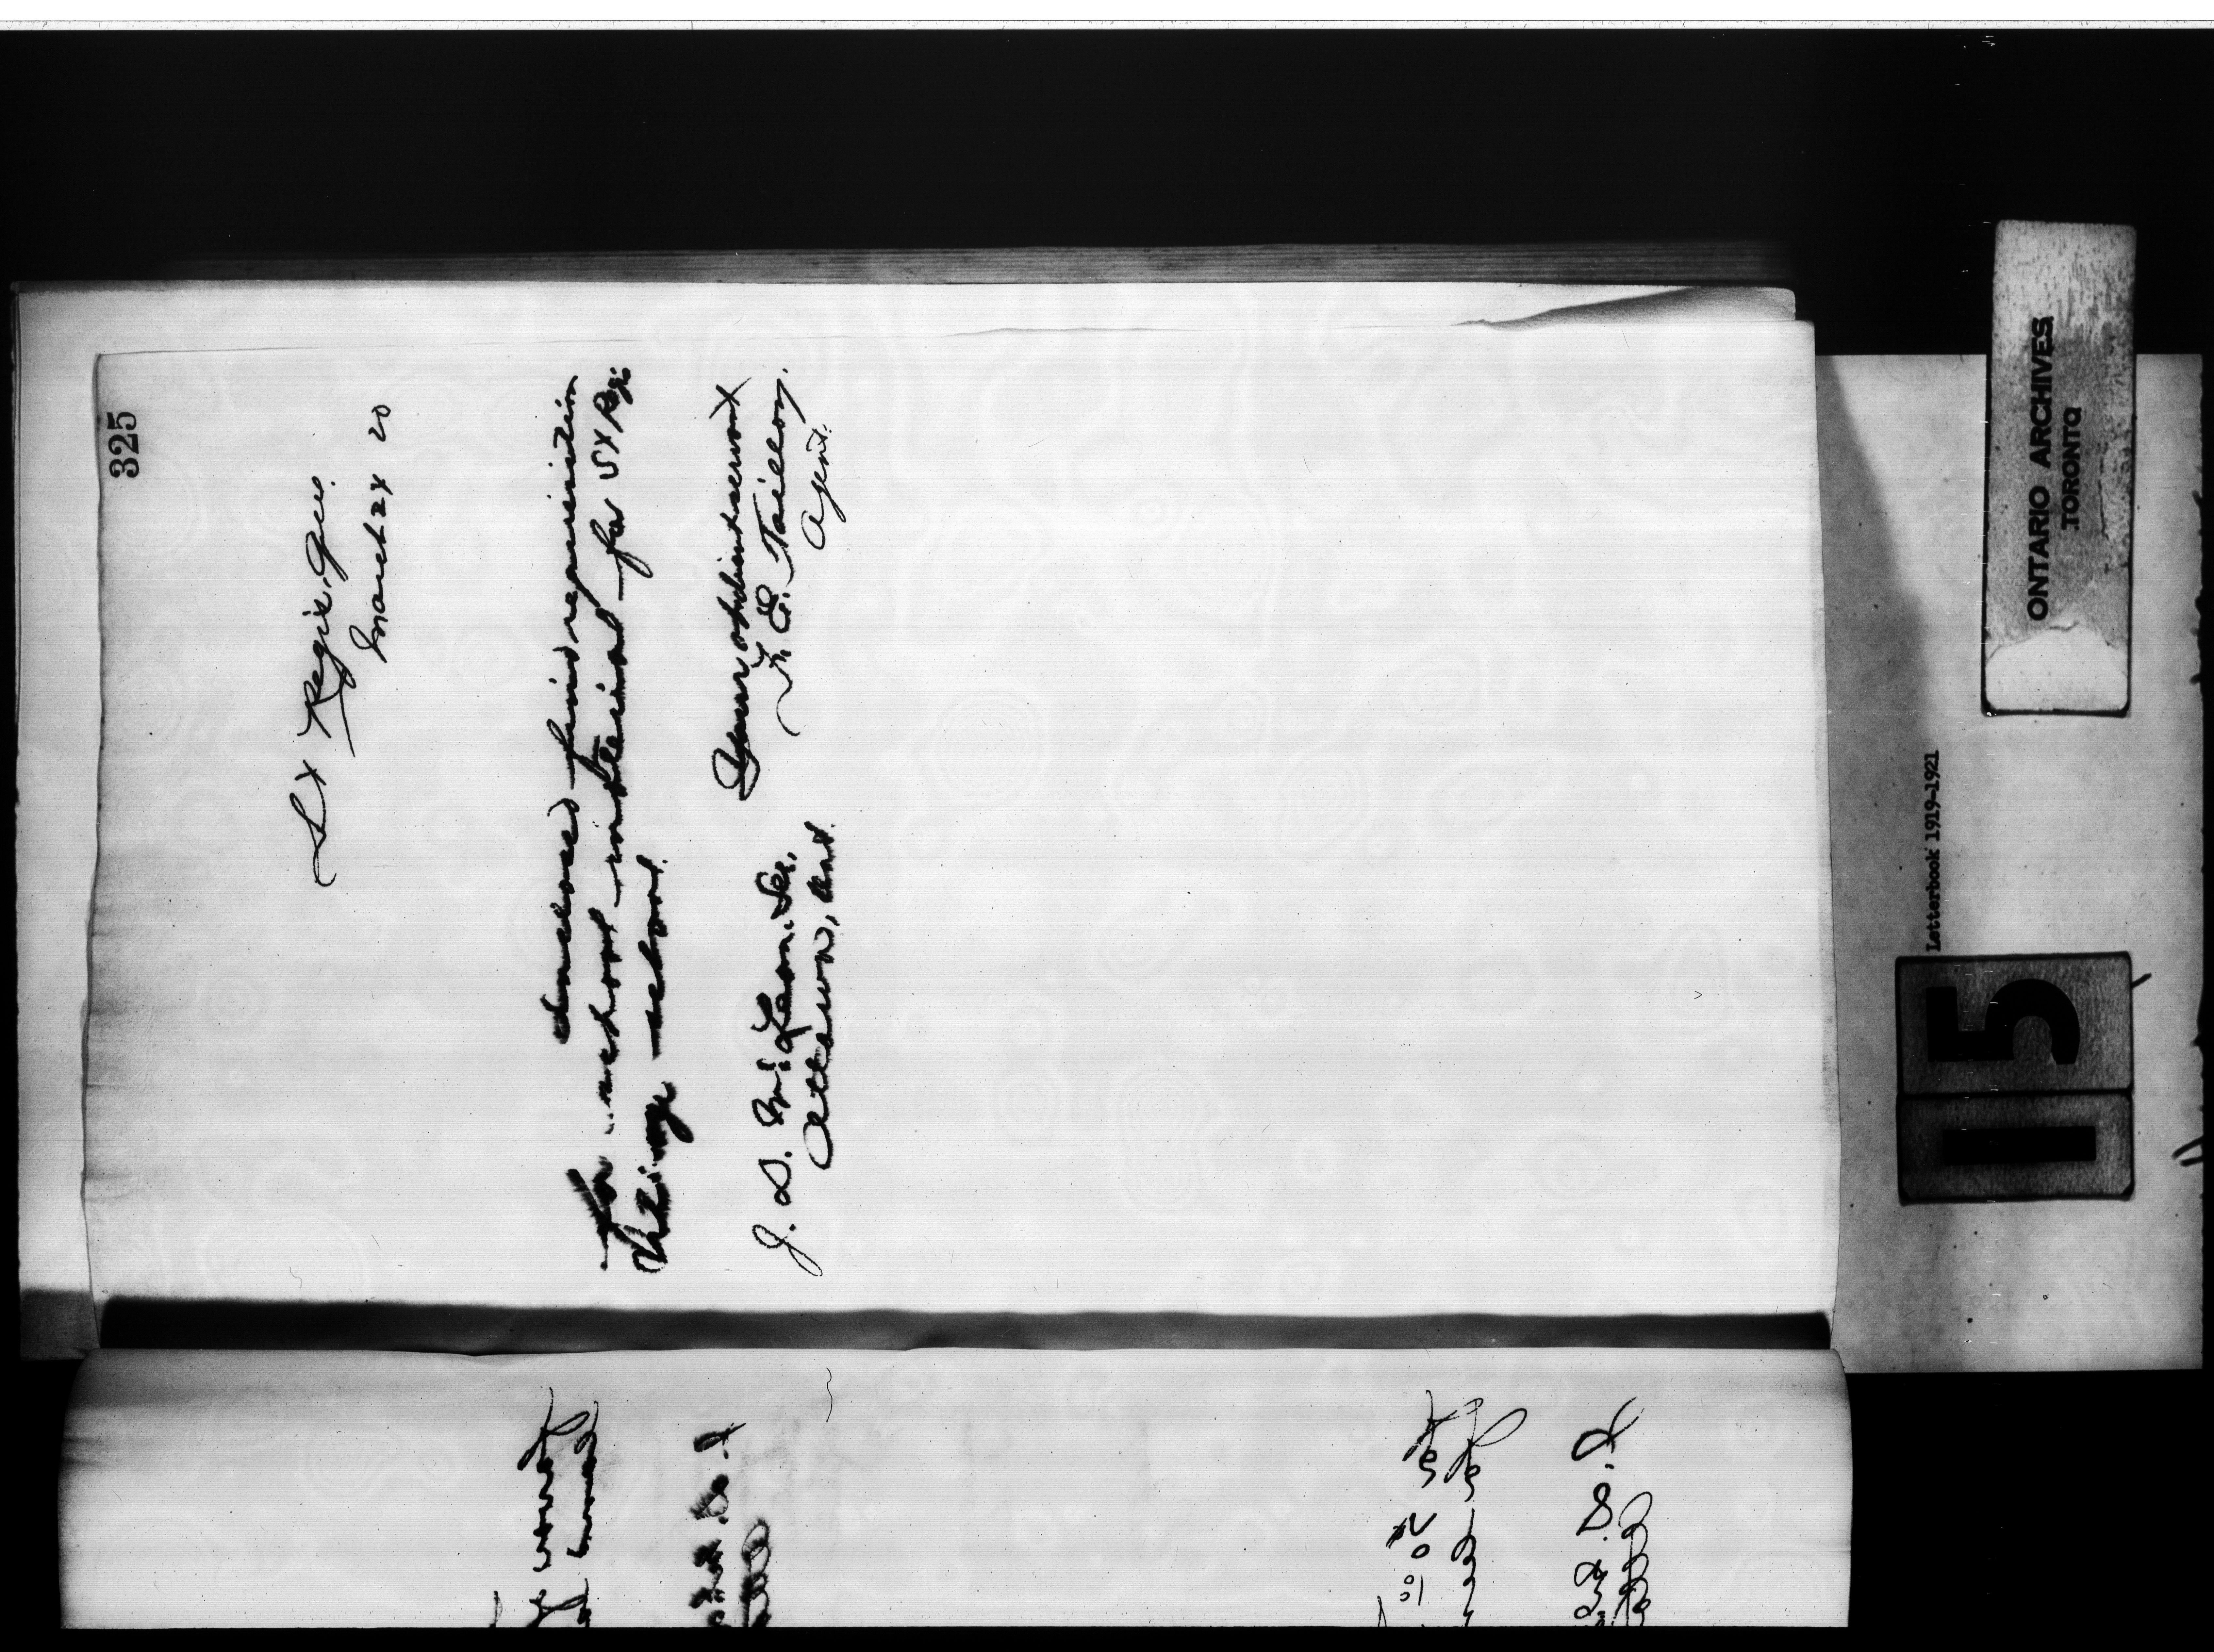 325
St Regis, Que.
March 24 20
Enclosed find requisition
for school material for St Regis
Village school.
Your obedient servant
F. E. Taillon,
Agent.
J. D. McLean. Sec.
Ottawa, Ont.
ONTARIO ARCHIVES
TORONTO
Letterbook 1919-1921
115